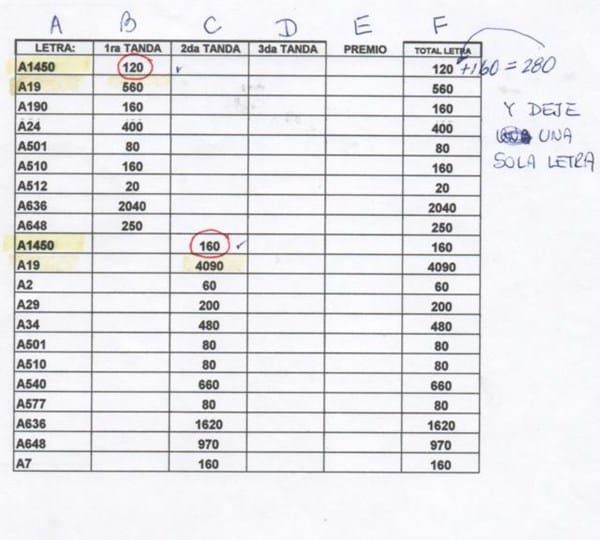 A B C D E F
LETRA: 1ra TANDA 2da TANDA 3da TANDA PREMIO TOTAL LETRA
A1450 120 120 +160 = 280
A19 560 560
A190 160 160
Y DEJE
A24 400 400
UNA
A501 80 80
SOLA LETRA
A510 160 160
A512 20 20
A636 2040 2040
A648 250 250
A1450 160 160
A19 4090 4090
A2 60 60
A29 200 200
A34 480 480
A501 80 80
A510 80 80
A540 660 660
A577 80 80
A636 1620 1620
A648 970 970
A7 160 160